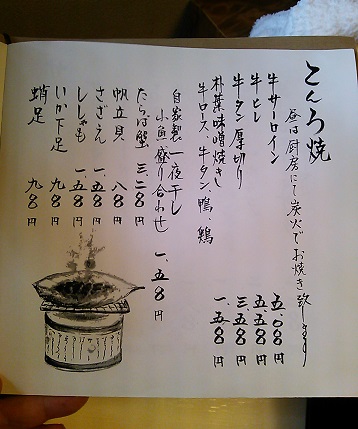 こんろ焼
昼は厨房にて炭火でお焼き致します
牛サーロイン 五、〇〇〇円
牛ヒレ 五、五〇〇円
牛タン厚切り 三、五〇〇円
朴葉味噌焼き 一、五〇〇円
牛ロース、牛タン、鴨、鶏
自家製一夜干し
小魚盛り合わせ 一、五〇〇円
たらば蟹 三、二〇〇円
帆立貝 八〇〇円
さざえ 一、五〇〇円
ししゃも 一、五〇〇円
いか下足 九〇〇円
蛸足 九〇〇円